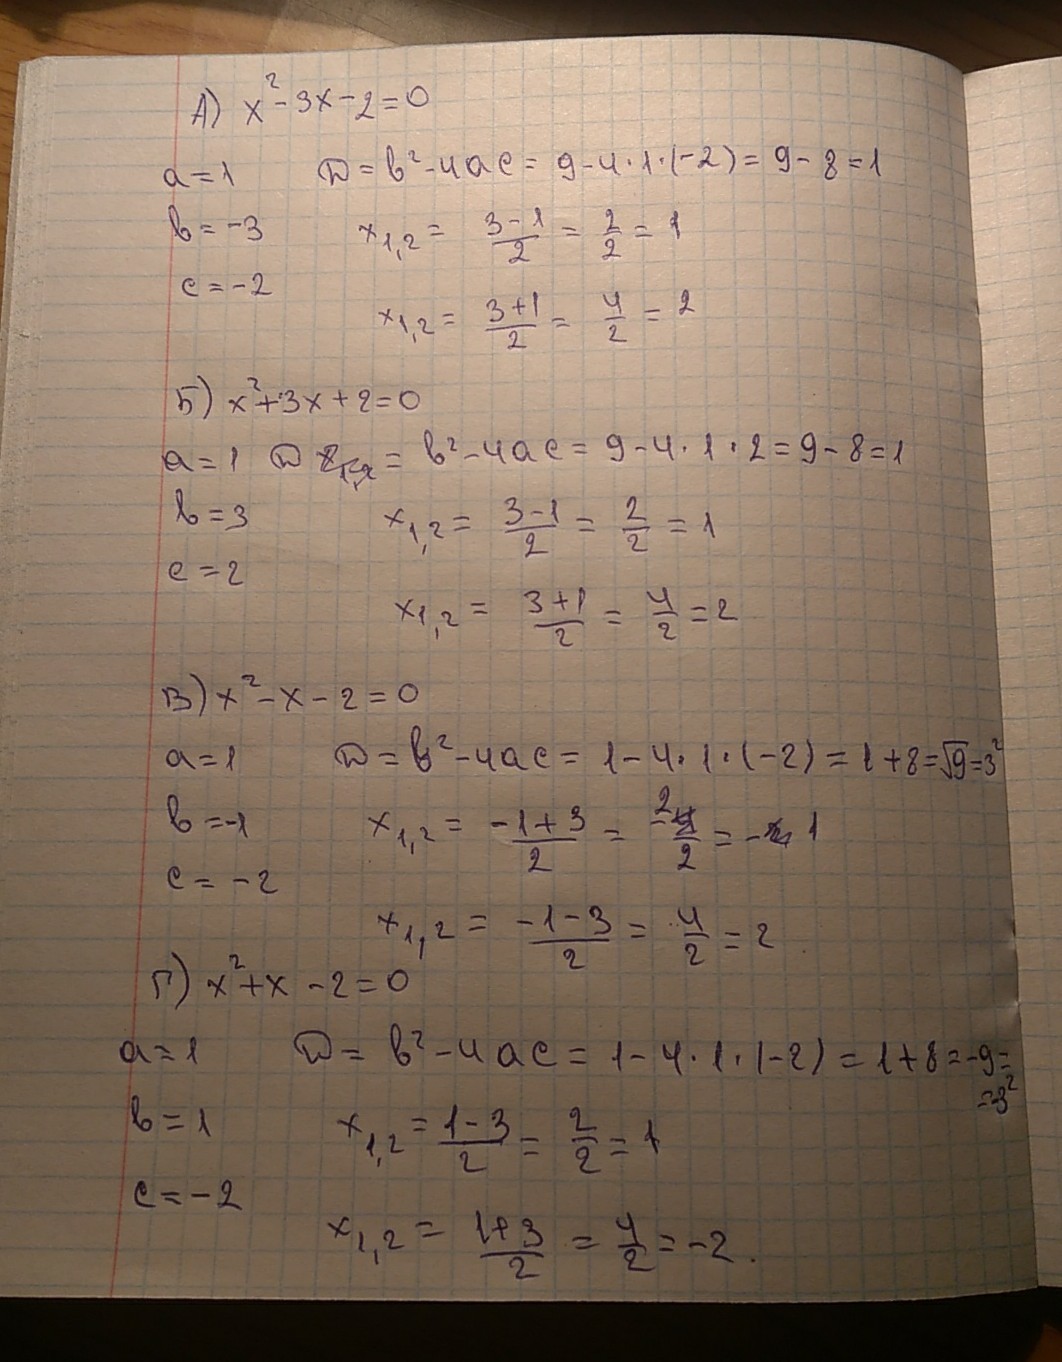 А) x²-3x-2=0
a=1 D=b²-4ac=9-4·1·(-2)=9-8=1
b=-3 x₁,₂= (3-1)/2 = 2/2 = 1
c=-2
x₁,₂= (3+1)/2 = 4/2 = 2
Б) x²+3x+2=0
a=1 D = b²-4ac=9-4·1·2=9-8=1
b=3 x₁,₂= (3-1)/2 = 2/2 = 1
c=2
x₁,₂= (3+1)/2 = 4/2 = 2
В) x²-x-2=0
a=1 D=b²-4ac=1-4·1·(-2)=1+8=√9=3²
b=-1 x₁,₂= (-1+3)/2 = 2/2 = -1
c=-2
x₁,₂= (-1-3)/2 = 4/2 = 2
Г) x²+x-2=0
a=1 D=b²-4ac=1-4·1·(-2)=1+8=-9=
=3²
b=1 x₁,₂= (1-3)/2 = 2/2 = 1
c=-2
x₁,₂= (1+3)/2 = 4/2 = -2.